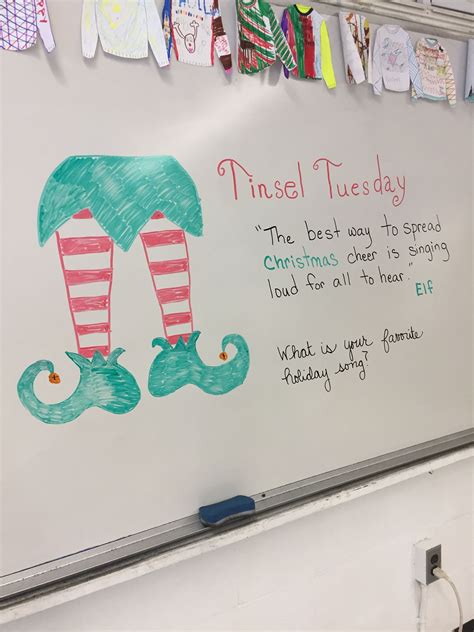 Tinsel Tuesday
"The best way to spread
Christmas cheer is singing
loud for all to hear."
Elf
What is your favorite
holiday song?